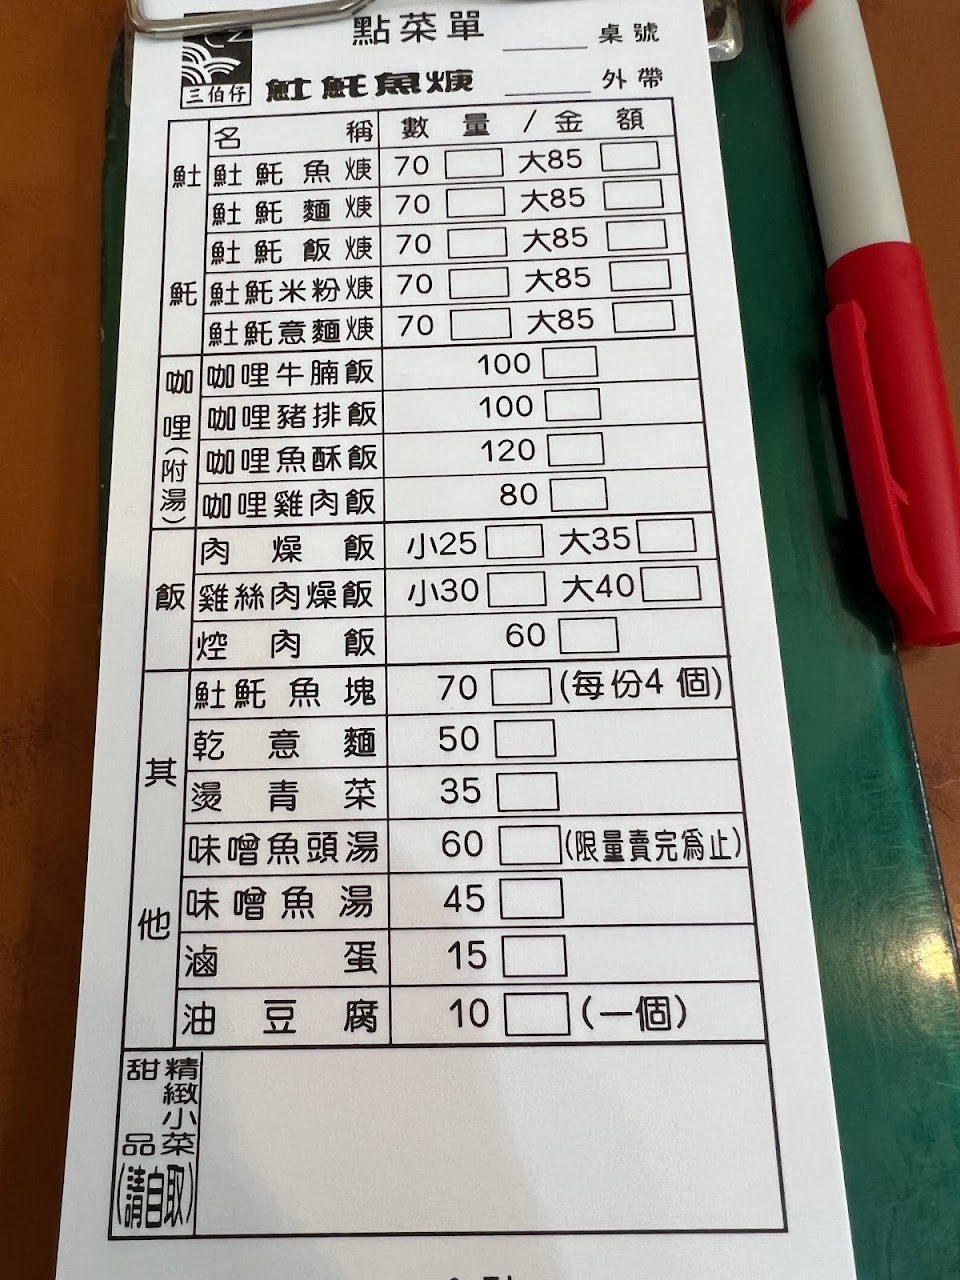 點菜單 桌號
三伯仔 𩵚魠魚焿 外帶
名稱 數量/金額
𩵚魠
𩵚魠魚焿 70 大85
𩵚魠麵焿 70 大85
𩵚魠飯焿 70 大85
𩵚魠米粉焿 70 大85
𩵚魠意麵焿 70 大85
咖哩(附湯)
咖哩牛腩飯 100
咖哩豬排飯 100
咖哩魚酥飯 120
咖哩雞肉飯 80
飯
肉燥飯 小25 大35
雞絲肉燥飯 小30 大40
焢肉飯 60
其他
𩵚魠魚塊 70 (每份4個)
乾意麵 50
燙青菜 35
味噌魚頭湯 60 (限量賣完為止)
味噌魚湯 45
滷蛋 15
油豆腐 10 (一個)
精緻小菜
甜品
(請自取)